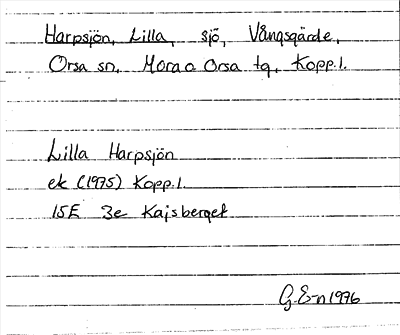 Harpsjön, Lilla, sjö, Vångsgärde,
Orsa sn, Mora o Orsa tg, Kopp.l.
Lilla Harpsjön
ek (1975) Kopp.l.
15E 3e Kajsberget
G. E-n 1976